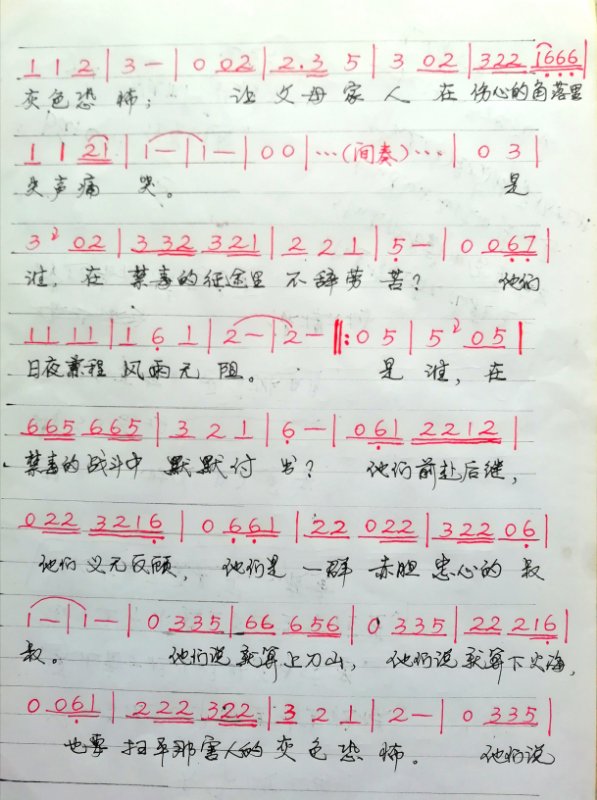 1 1 2 | 3 — | 0 02 | 2.3 5 | 3 02 | 322 1666
灰色恐怖； 让父母家人在伤心的角落里
1 1 21 | 1 — | 1 — | 0 0 | …(间奏)… | 0 3 |
失声痛哭。 是
3 2 02 | 332 321 | 2 2 1 | 5 — | 0 067 |
谁，在禁毒的征途里不辞劳苦？ 他们
11 11 | 1 6 1 | 2 — | 2 — ‖: 0 5 | 5 2 05 |
日夜兼程风雨无阻。 是谁，在
665 665 | 3 2 1 | 6 — | 061 2212 |
禁毒的战斗中默默付出？ 他们前赴后继，
022 3216 | 0 661 | 22 022 | 322 06 |
他们义无反顾， 他们是一群赤胆忠心的叔
1 — | 1 — | 0 335 | 66 656 | 0 335 | 22 216 |
叔。 他们说就算上刀山， 他们说就算下火海，
0 061 | 222 322 | 3 2 1 | 2 — | 0 335 |
也要扫平那害人的灰色恐怖。 他们说